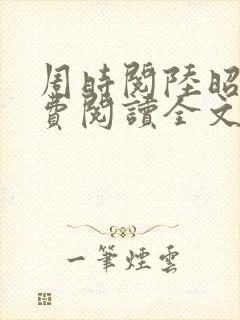 周時閱陸昭
費閱讀全文
一筆煙雲